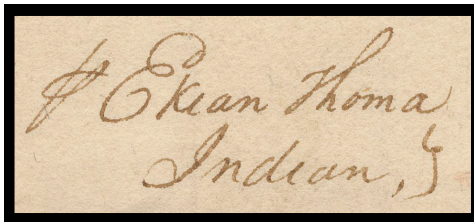 # Ekean Thoma
Indian, }